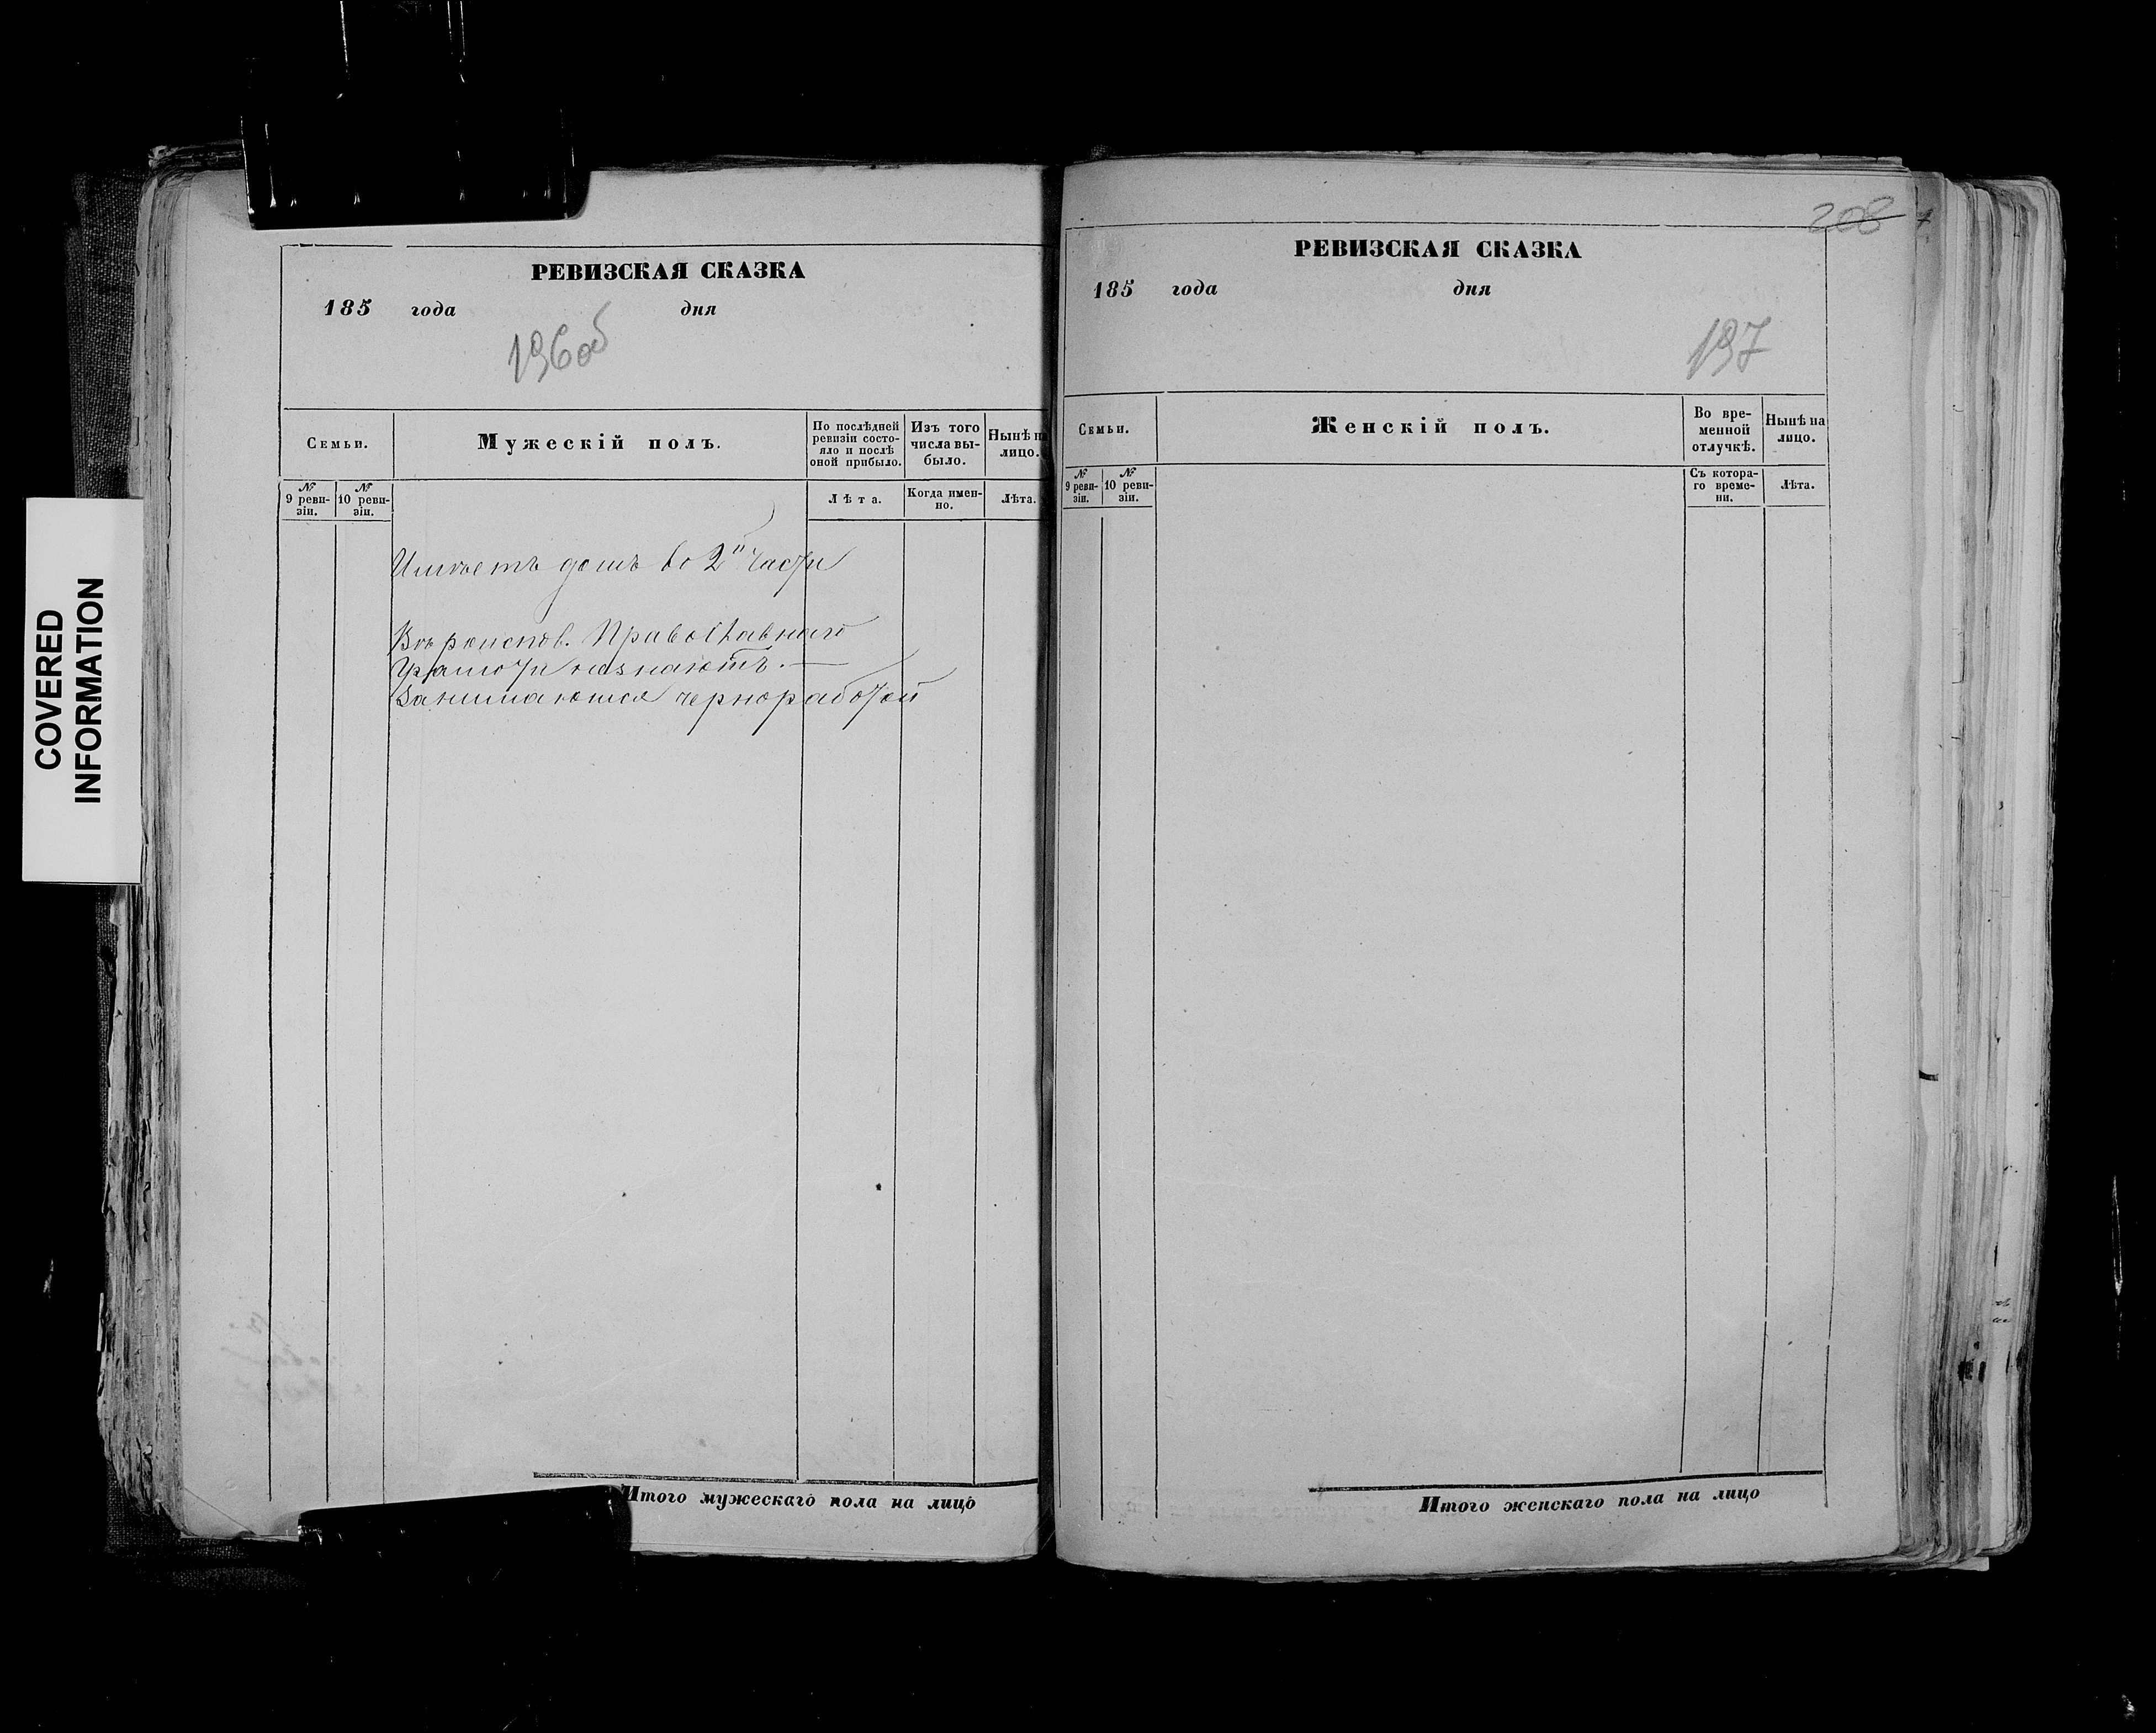 COVERED
INFORMATION
РЕВИЗСКАЯ СКАЗКА
185 года дня
196об
Семьи.
Мужескій полъ.
По послѣдней ревизіи состояло и послѣ оной прибыло.
Изъ того числа выбыло.
Нынѣ на лицо.
№ 9 ревизіи.
№ 10 ревизіи.
Лѣта.
Когда именно.
Лѣта.
Имѣетъ домъ во 2й части
Вѣроисповѣд. Православнаго
Грамоти незнаютъ. —
Занимаются чернорабоtой
Итого мужескаго пола на лицо
208
РЕВИЗСКАЯ СКАЗКА
185 года дня
197
Семьи.
Женскій полъ.
Во временной отлучкѣ.
Нынѣ на лицо.
№ 9 ревизіи.
№ 10 ревизіи.
Съ котораго времени.
Лѣта.
Итого женскаго пола на лицо